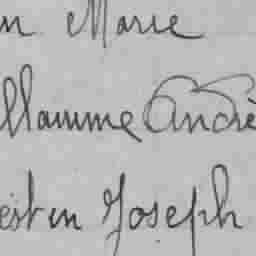 n Marie
llaume André
estin Joseph